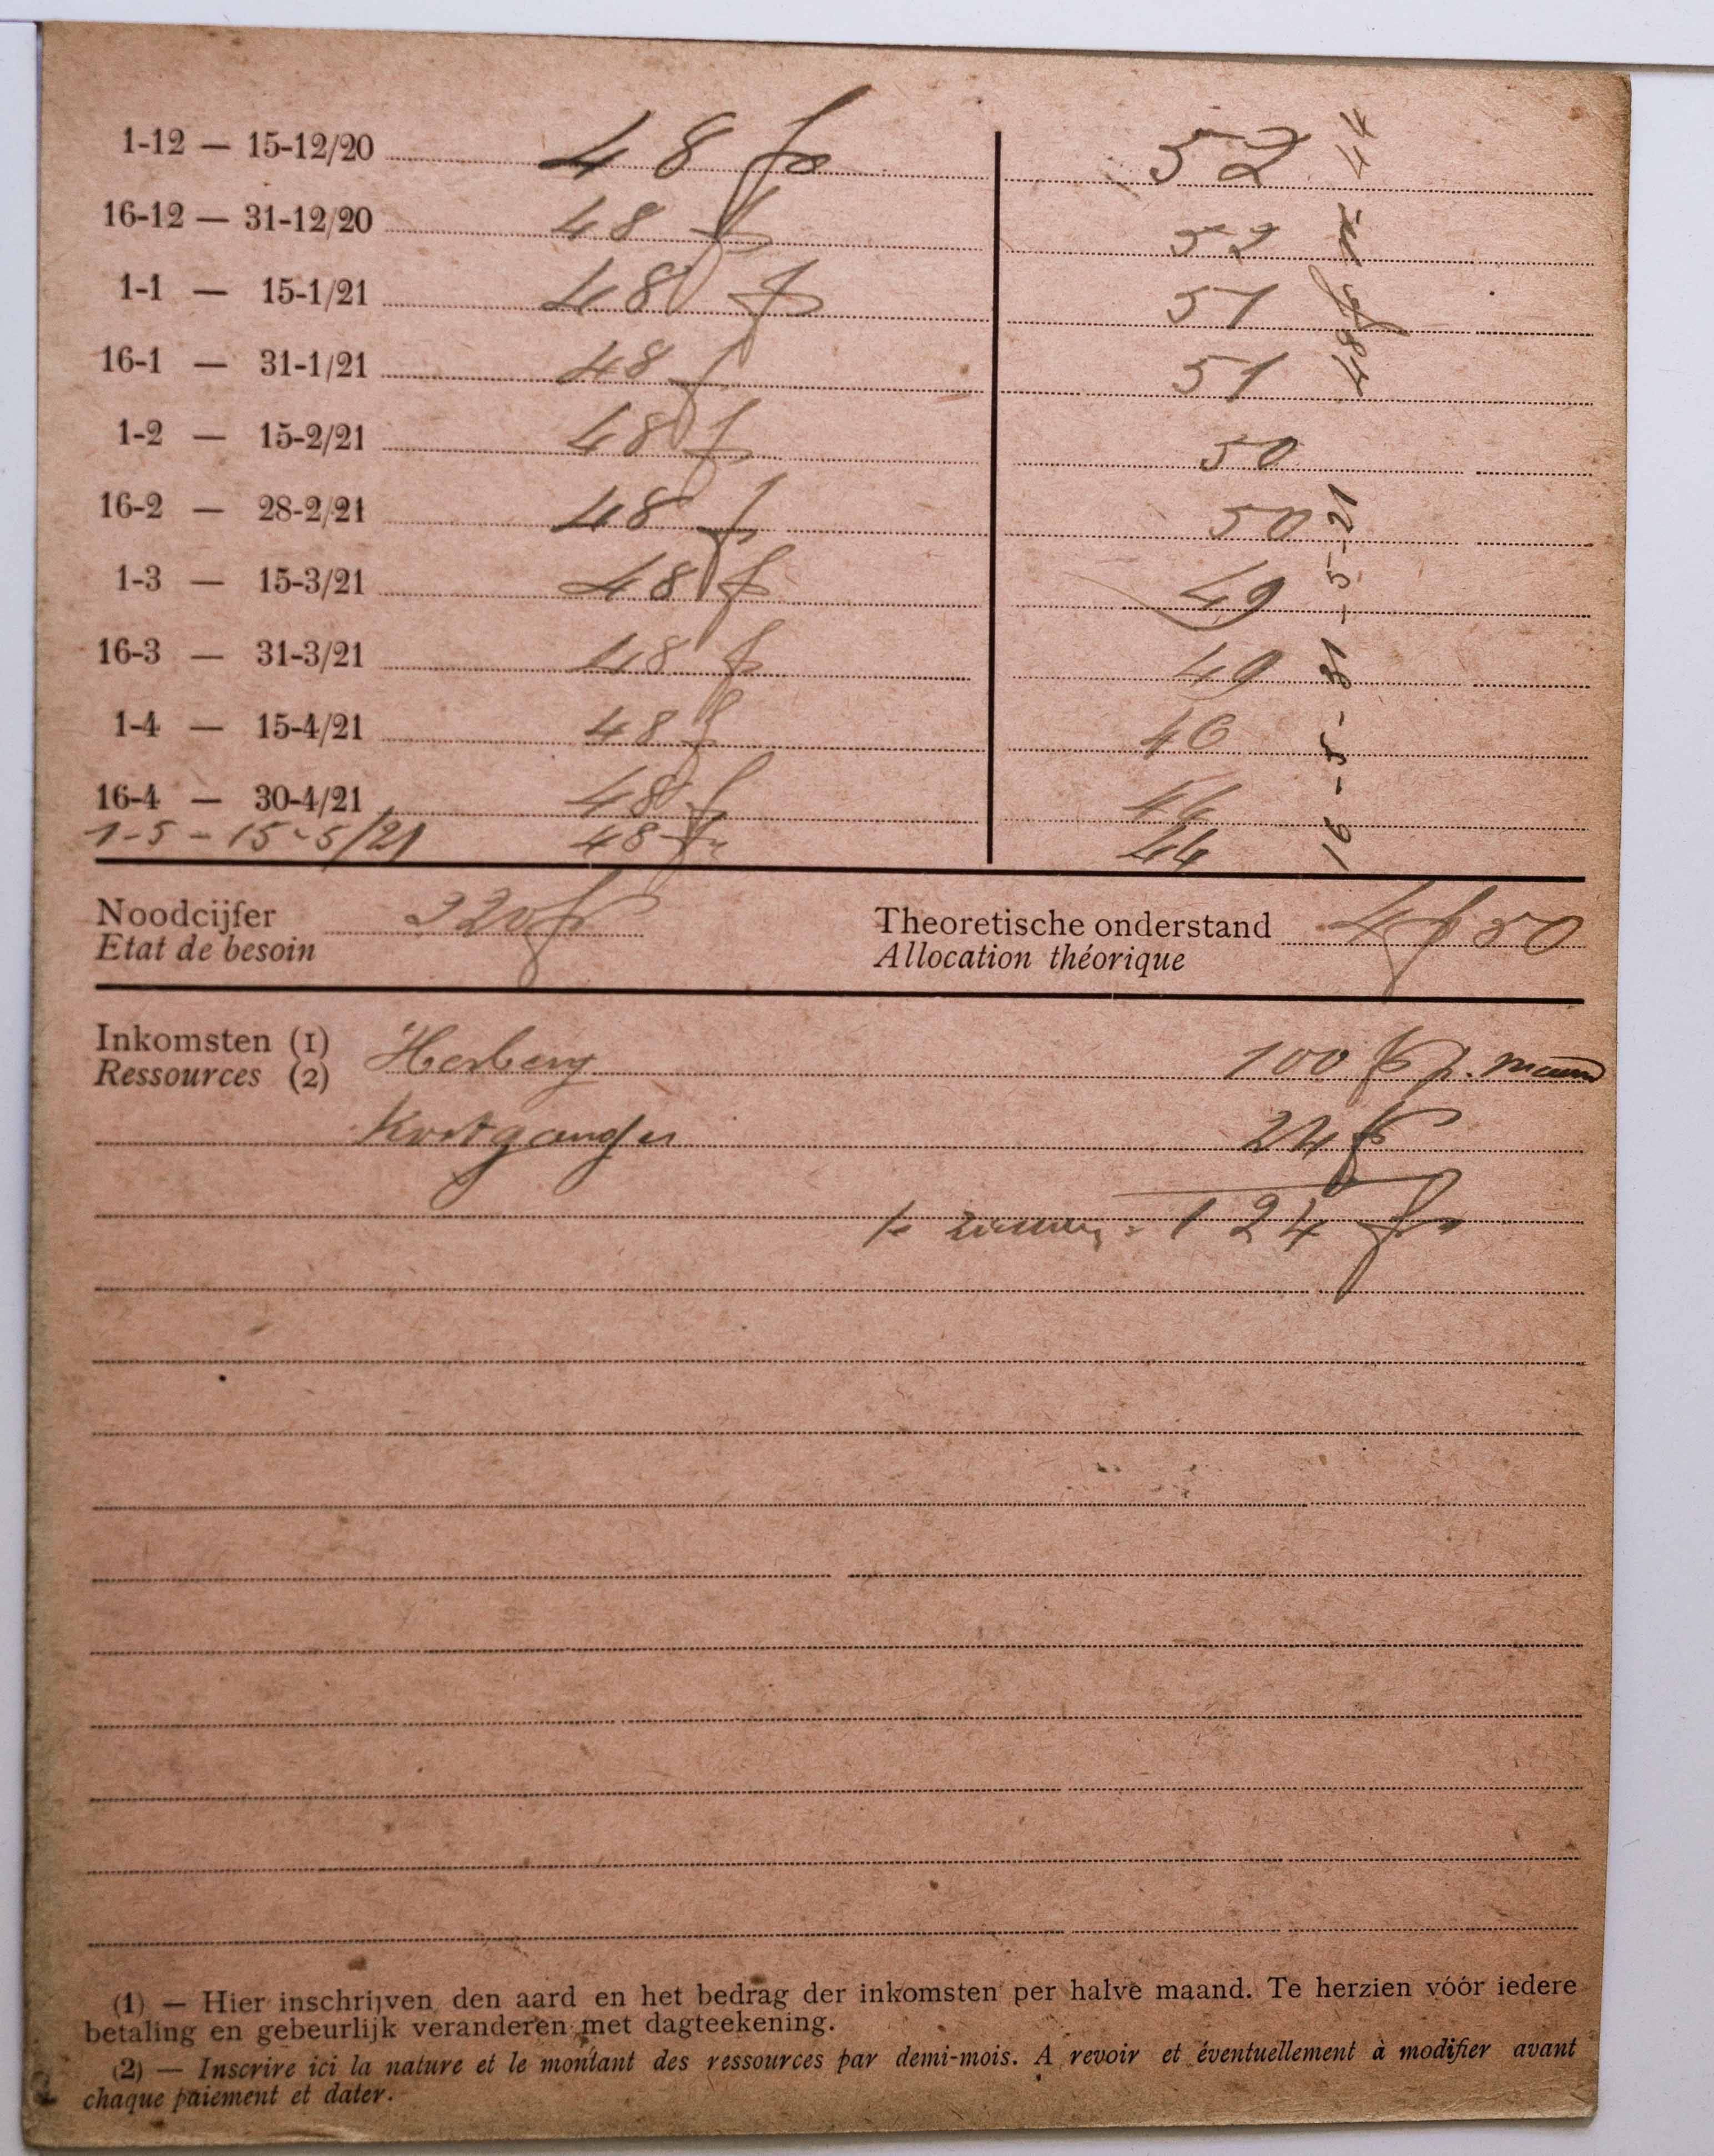 1-12 — 15-12/20 48 fr 52
16-12 — 31-12/20 48 fr 52
1-1 — 15-1/21 48 fr 51
16-1 — 31-1/21 48 f 51
1-2 — 15-2/21 48 f 50
16-2 — 28-2/21 48 f 50
1-3 — 15-3/21 48 fr 49
16-3 — 31-3/21 48 fr 49
1-4 — 15-4/21 48 f 46
16-4 — 30-4/21 48 f 46
1-5 - 15-5/21 48 fr 44
16 - 5 - 31 - 5-21 48 fr 44
Noodcijfer 320 fr Theoretische onderstand 4 f 50
Etat de besoin Allocation théorique
Inkomsten (1) Herberg 100 fr p. maand
Ressources (2)
Kostganger 24 fr
te zamen = 124 fr
(1) — Hier inschrijven den aard en het bedrag der inkomsten per halve maand. Te herzien vóór iedere
betaling en gebeurlijk veranderen met dagteekening.
(2) — Inscrire ici la nature et le montant des ressources par demi-mois. A revoir et éventuellement à modifier avant
chaque paiement et dater.